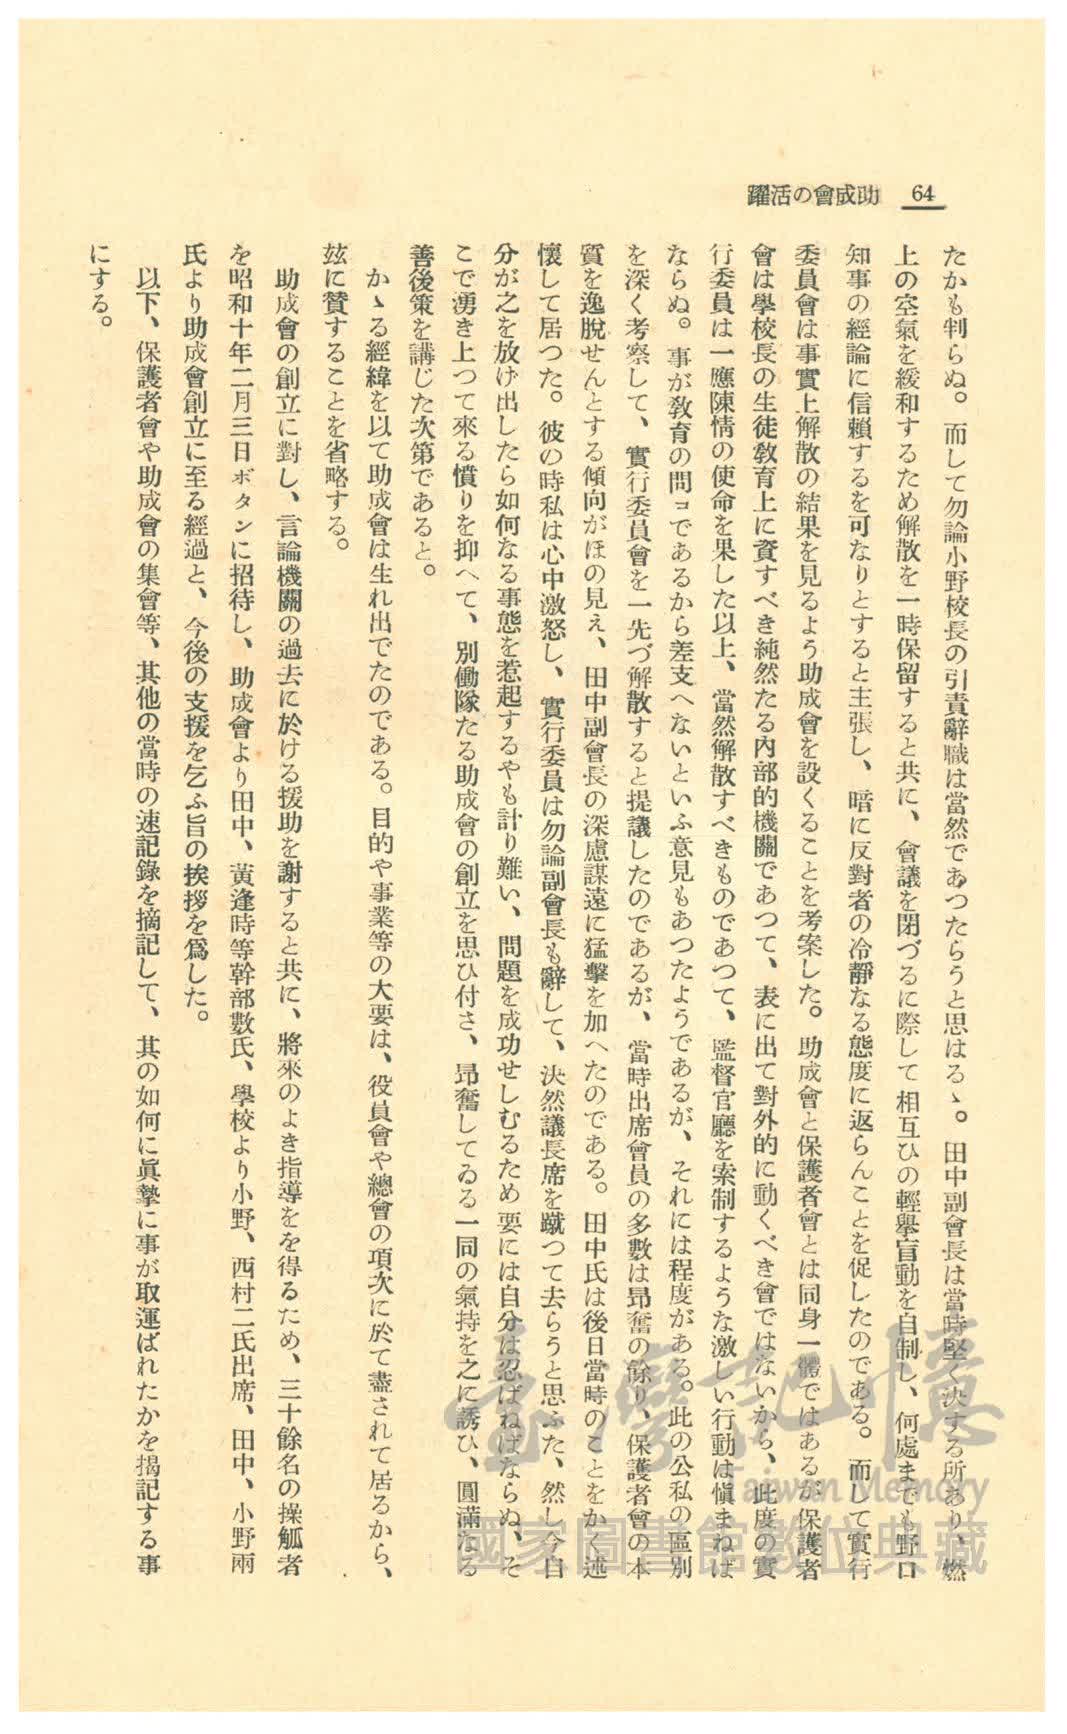 64
助成會の活躍
たかも判らぬ。而して勿論小野校長の引責辭職は當然であつたらうと思はるゝ。田中副會長は當時堅く決する所あり、燃
上の空氣を緩和するため解散を一時保留すると共に、會議を閉づるに際して相互ひの輕擧盲動を自制し、何處までも野口
知事の經論に信賴するを可なりとすると主張し、暗に反對者の冷靜なる態度に返らんことを促したのである。而して實行
委員會は事實上解散の結果を見るよう助成會を設くることを考案した。助成會と保護者會とは同身一體ではあるが保護者
會は學校長の生徒敎育上に資すべき純然たる內部的機關であつて、表に出て對外的に動くべき會ではないから、此度の實
行委員は一應陳情の使命を果した以上、當然解散すべきものであつて、監督官廳を索制するような激しい行動は愼まねば
ならぬ。事が敎育の問ヨであるから差支へないといふ意見もあつたようであるが、それには程度がある。此の公私の區別
を深く考察して、實行委員會を一先づ解散すると提議したのであるが、當時出席會員の多數は昂奮の餘り、保護者會の本
質を逸脫せんとする傾向がほの見え、田中副會長の深慮謀遠に猛擊を加へたのである。田中氏は後日當時のことをかく述
懷して居つた。彼の時私は心中激怒し、實行委員は勿論副會長も辭して、決然議長席を蹴つて去らうと思ふた、然し今自
分が之を放げ出したら如何なる事態を惹起するやも計り難い、問題を成功せしむるため要には自分は忍ばねばならぬ、そ
こで湧き上つて來る憤りを抑へて、別働隊たる助成會の創立を思ひ付さ、昂奮してゐる一同の氣持を之に誘ひ、圓滿なる
善後策を講じた次第であると。
かゝる經緯を以て助成會は生れ出でたのである。目的や事業等の大要は、役員會や總會の項次に於て盡されて居るから、
玆に贊することを省略する。
助成會の創立に對し、言論機關の過去に於ける援助を謝すると共に、將來のよき指導をを得るため、三十餘名の操觚者
を昭和十年二月三日ボタンに招待し、助成會より田中、黃逢時等幹部數氏、學校より小野、西村二氏出席、田中、小野兩
氏より助成會創立に至る經過と、今後の支援を乞ふ旨の挨拶を爲した。
以下、保護者會や助成會の集會等、其他の當時の速記錄を摘記して、其の如何に眞摯に事が取運ばれたかを揭記する事
にする。
臺灣記憶
Taiwan Memory
國家圖書館數位典藏